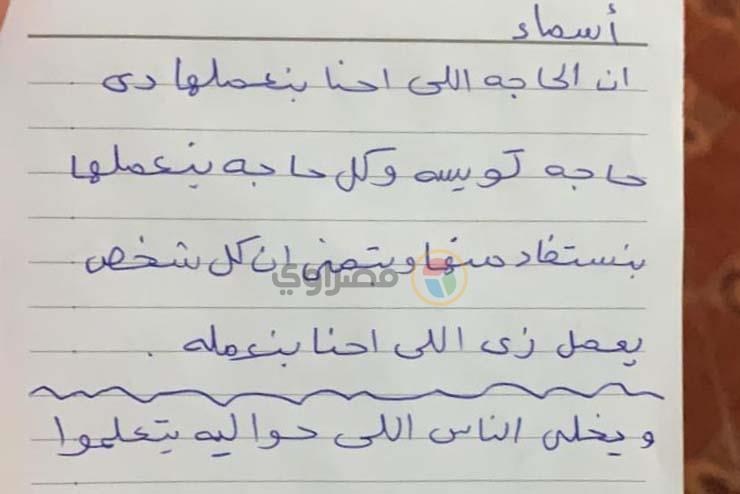 أسماء
ان الحاجه اللى احنا بنعملها دى
حاجه كويسه وكل حاجه بنعملها
بنستفاد منها وبتمنى ان كل شخص
يعمل زى اللى احنا بنعمله .
ويخلى الناس اللى حواليه يتعلموا
مصراوي